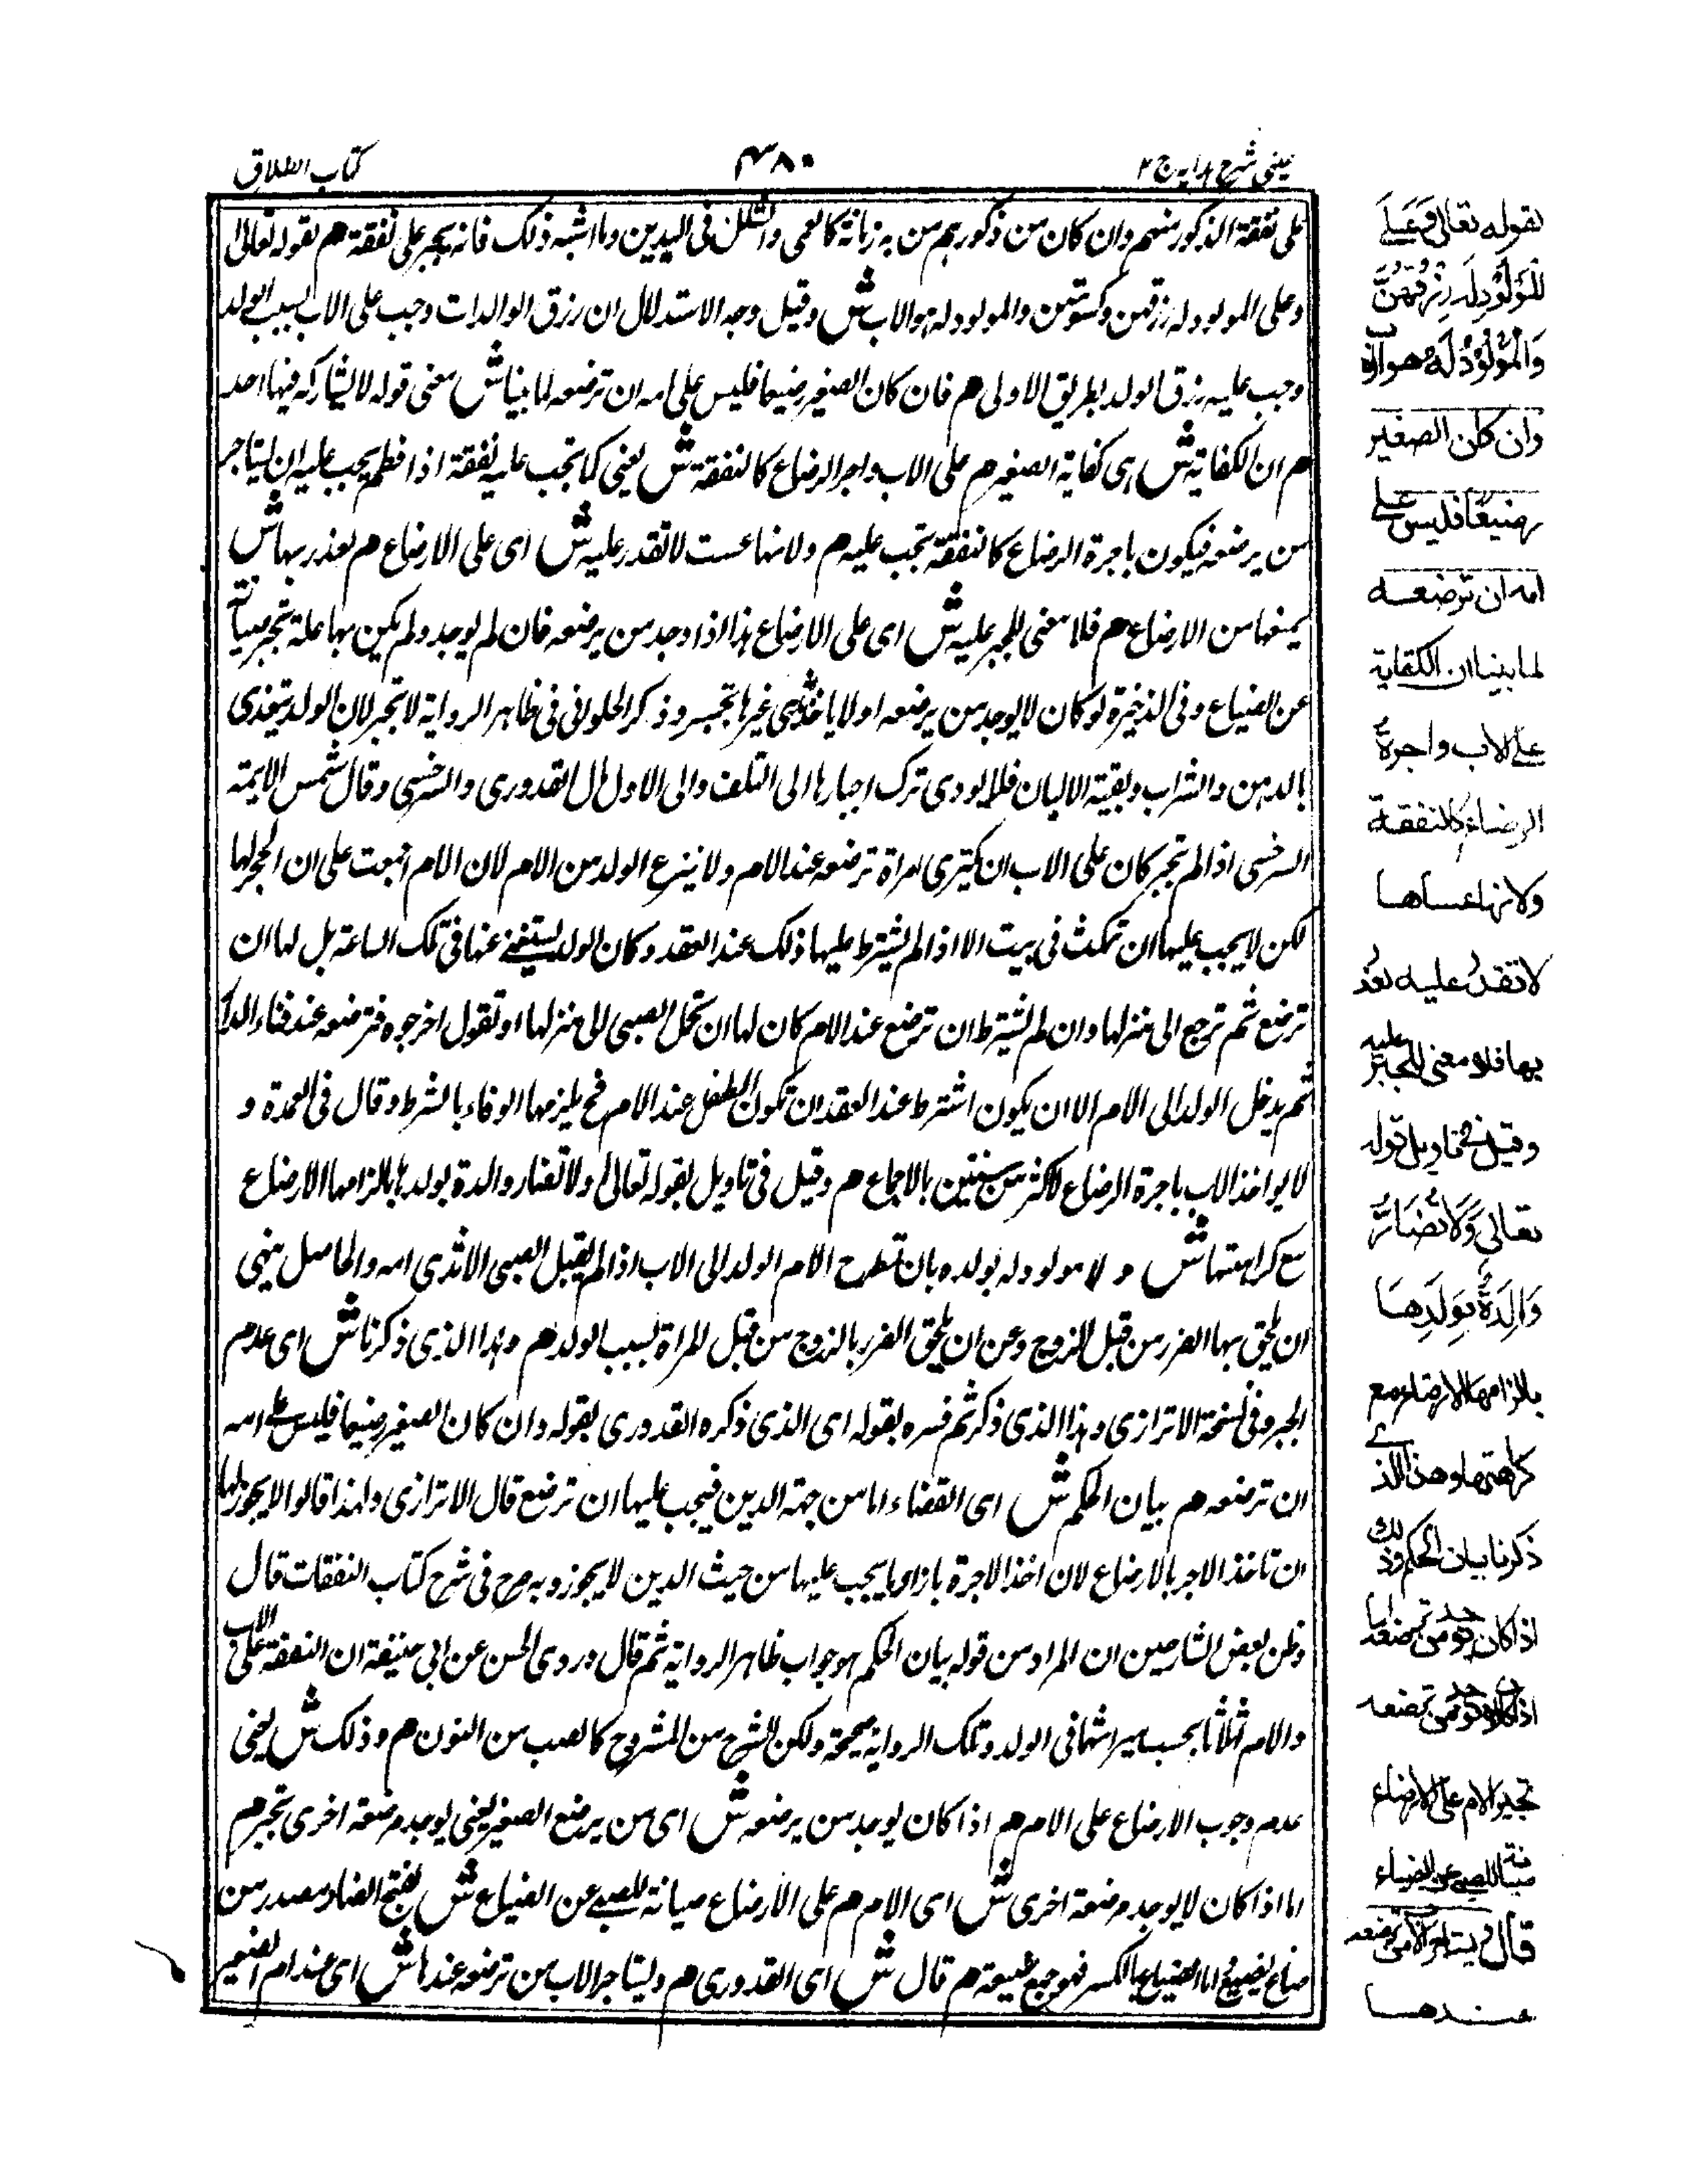 عینی شرح هدایه ج ۲
۴۸۰
کتاب الطلاق
على نفقة الذكور منهم وان كان من ذكورهم من به زمانة كالعمى والشلل فى اليدين وما اشبه ذلك فانه يجبر على نفقة هم لقوله تعالى
وعلى المولود له رزقهن وكسوتهن والمولود له هو الاب ش وقيل وجه الاستدلال ان رزق الوالدات وجب على الاب بسبب الولد
وجب عليه رزق الولد بطريق الاولى هم فان كان الصغير رضيعا فليس على امه ان ترضعه لما بينا ش معنى قوله لا يشاركه فيها احد
هم ان الكفاية ش اى كفاية الصغير هم على الاب واجر الرضاع كالنفقة ش يعنى كما تجب عليه نفقة اذا فطم يجب عليه ان يستاجر
من يرضعه فيكون باجرة الرضاع كالنفقة تجب عليه م ولانها عست لا تقدر عليه ش اى على الارضاع هم لعذر بها ش
يمنعها من الارضاع هم فلا معنى للجبر عليه ش اى على الارضاع هذا اذا وجد من يرضعه فان لم يوجد ولم يكن بها علة تجبر صيانة
عن الضياع وفى الذخيرة لو كان لا يوجد من يرضعه او لا ياخذ ثدى غيرها تجبر وذكر الحلوانى فى ظاهر الرواية لا تجبر لان الولد يتغذى
بالدهن والشراب وبقية الالبان فلا يودى ترك اجبارها الى التلف والى الاول مال القدورى والسرخسى وقال شمس الايمة
السرخسى اذا لم تجبر كان على الاب ان يكترى امراة ترضعه عند الام ولا ينزع الولد من الام لان الام اجمعت على ان الحجر لها
لكن لا يجب عليها ان تمكث فى بيت الا اذا لم يشترط عليها ذلك عند العقد وكان الولد يستغنى عنها فى تلك الساعة بل لها ان
ترضع ثم ترجع الى منزلها وان لم يشترط ان ترضع عند الام كان لها ان تحمل الصبى الى منزلها او تقول اخرجوه فترضعه عند فناء الدار
ثم يدخل الولد الى الام الا ان يكون اشترط عند العقد ان تكون الطفل عند الام فح يلزمها الوفاء بالشرط وقال فى العمدة و
لا يواخذ الاب باجرة الرضاع لاكثر من سنتين بالاجماع هم وقيل فى تاويل لقوله تعالى ولا تضار والدة بولدها بالزامها الارضاع
مع كراهتها ش و لا مولود له بولده بان تطرح الام الولد الى الاب اذا لم يقبل الصبى الا ثدى امه والحاصل ينهى
ان يلحق بها الضرر من قبل الزوج وعن ان يلحق الضرر بالزوج من قبل المراة بسبب الولد هم وهذا الذى ذكرنا ش اى عدم
الجبر وفى نسخة الاترازى وهذا الذى ذكر ثم فسره بقوله اى الذى ذكره القدورى بقوله وان كان الصغير رضيعا فليس على امه
ان ترضعه هم بيان الحكم ش اى القضاء اما من جهة الدين فيجب عليها ان ترضع قال الاترازى ولهذا قالوا لا يجوز لها
ان تاخذ الاجر بالارضاع لان اخذ الاجرة بازاء ما يجب عليها من حيث الدين لا يجوز وبه صرح فى شرح كتاب النفقات قال
وظن بعض الشارحين ان المراد من قوله بيان الحكم هو جواب ظاهر الرواية ثم قال وروى الحسن عن ابى حنيفة ان النفقة على الاب
والام اثلاثا بحسب ميراثهما فى الولد وتلك الرواية صحيحة ولكن الشرح من المشروح كالضب من النون هم وذلك ش يعنى
عدم وجوب الارضاع على الام هم اذا كان يوجد من يرضعه ش اى من يرضع الصغير يعنى يوجد مرضعة اخرى تجبر هم
اما اذا كان لا يوجد مرضعة اخرى ش اى الام هم على الارضاع صيانة للصبى عن الضياع ش بفتح الضاد مصدر من
ضاع يضيع واما الضياع بالكسر فهو جمع ضيعة هم قال ش اى القدورى هم ويستاجر الاب من ترضعه عندها ش اى عند ام الصغير
لقوله تعالى وَعَلَى
الْمَوْلُوْدِ لَهُ رِزْقُهُنَّ
وَالْمَوْلُوْدُ لَهُ هو الاب
وان كان الصغير
رضيعًا فليس على
امه ان ترضعه
لما بينا ان الكفاية
على الاب واجرة
الرضاع كالنفقة
ولانها عساها
لا تقدر عليه لعذر
بها فلا معنى للجبر عليه
وقيل فى تاويل قوله
تعالى وَلَا تُضَارَّ
وَالِدَةٌ بِوَلَدِهَا
بالزامها الارضاع مع
كراهتها وهذا الذى
ذكرنا بيان الحكم وذلك
اذا كان يوجد من ترضعه اما
اذا كان لا يوجد من ترضعه
تجبر الام على الارضاع
صيانة للصبى عن الضياع
قال ويستاجر الاب من ترضعه
عندها